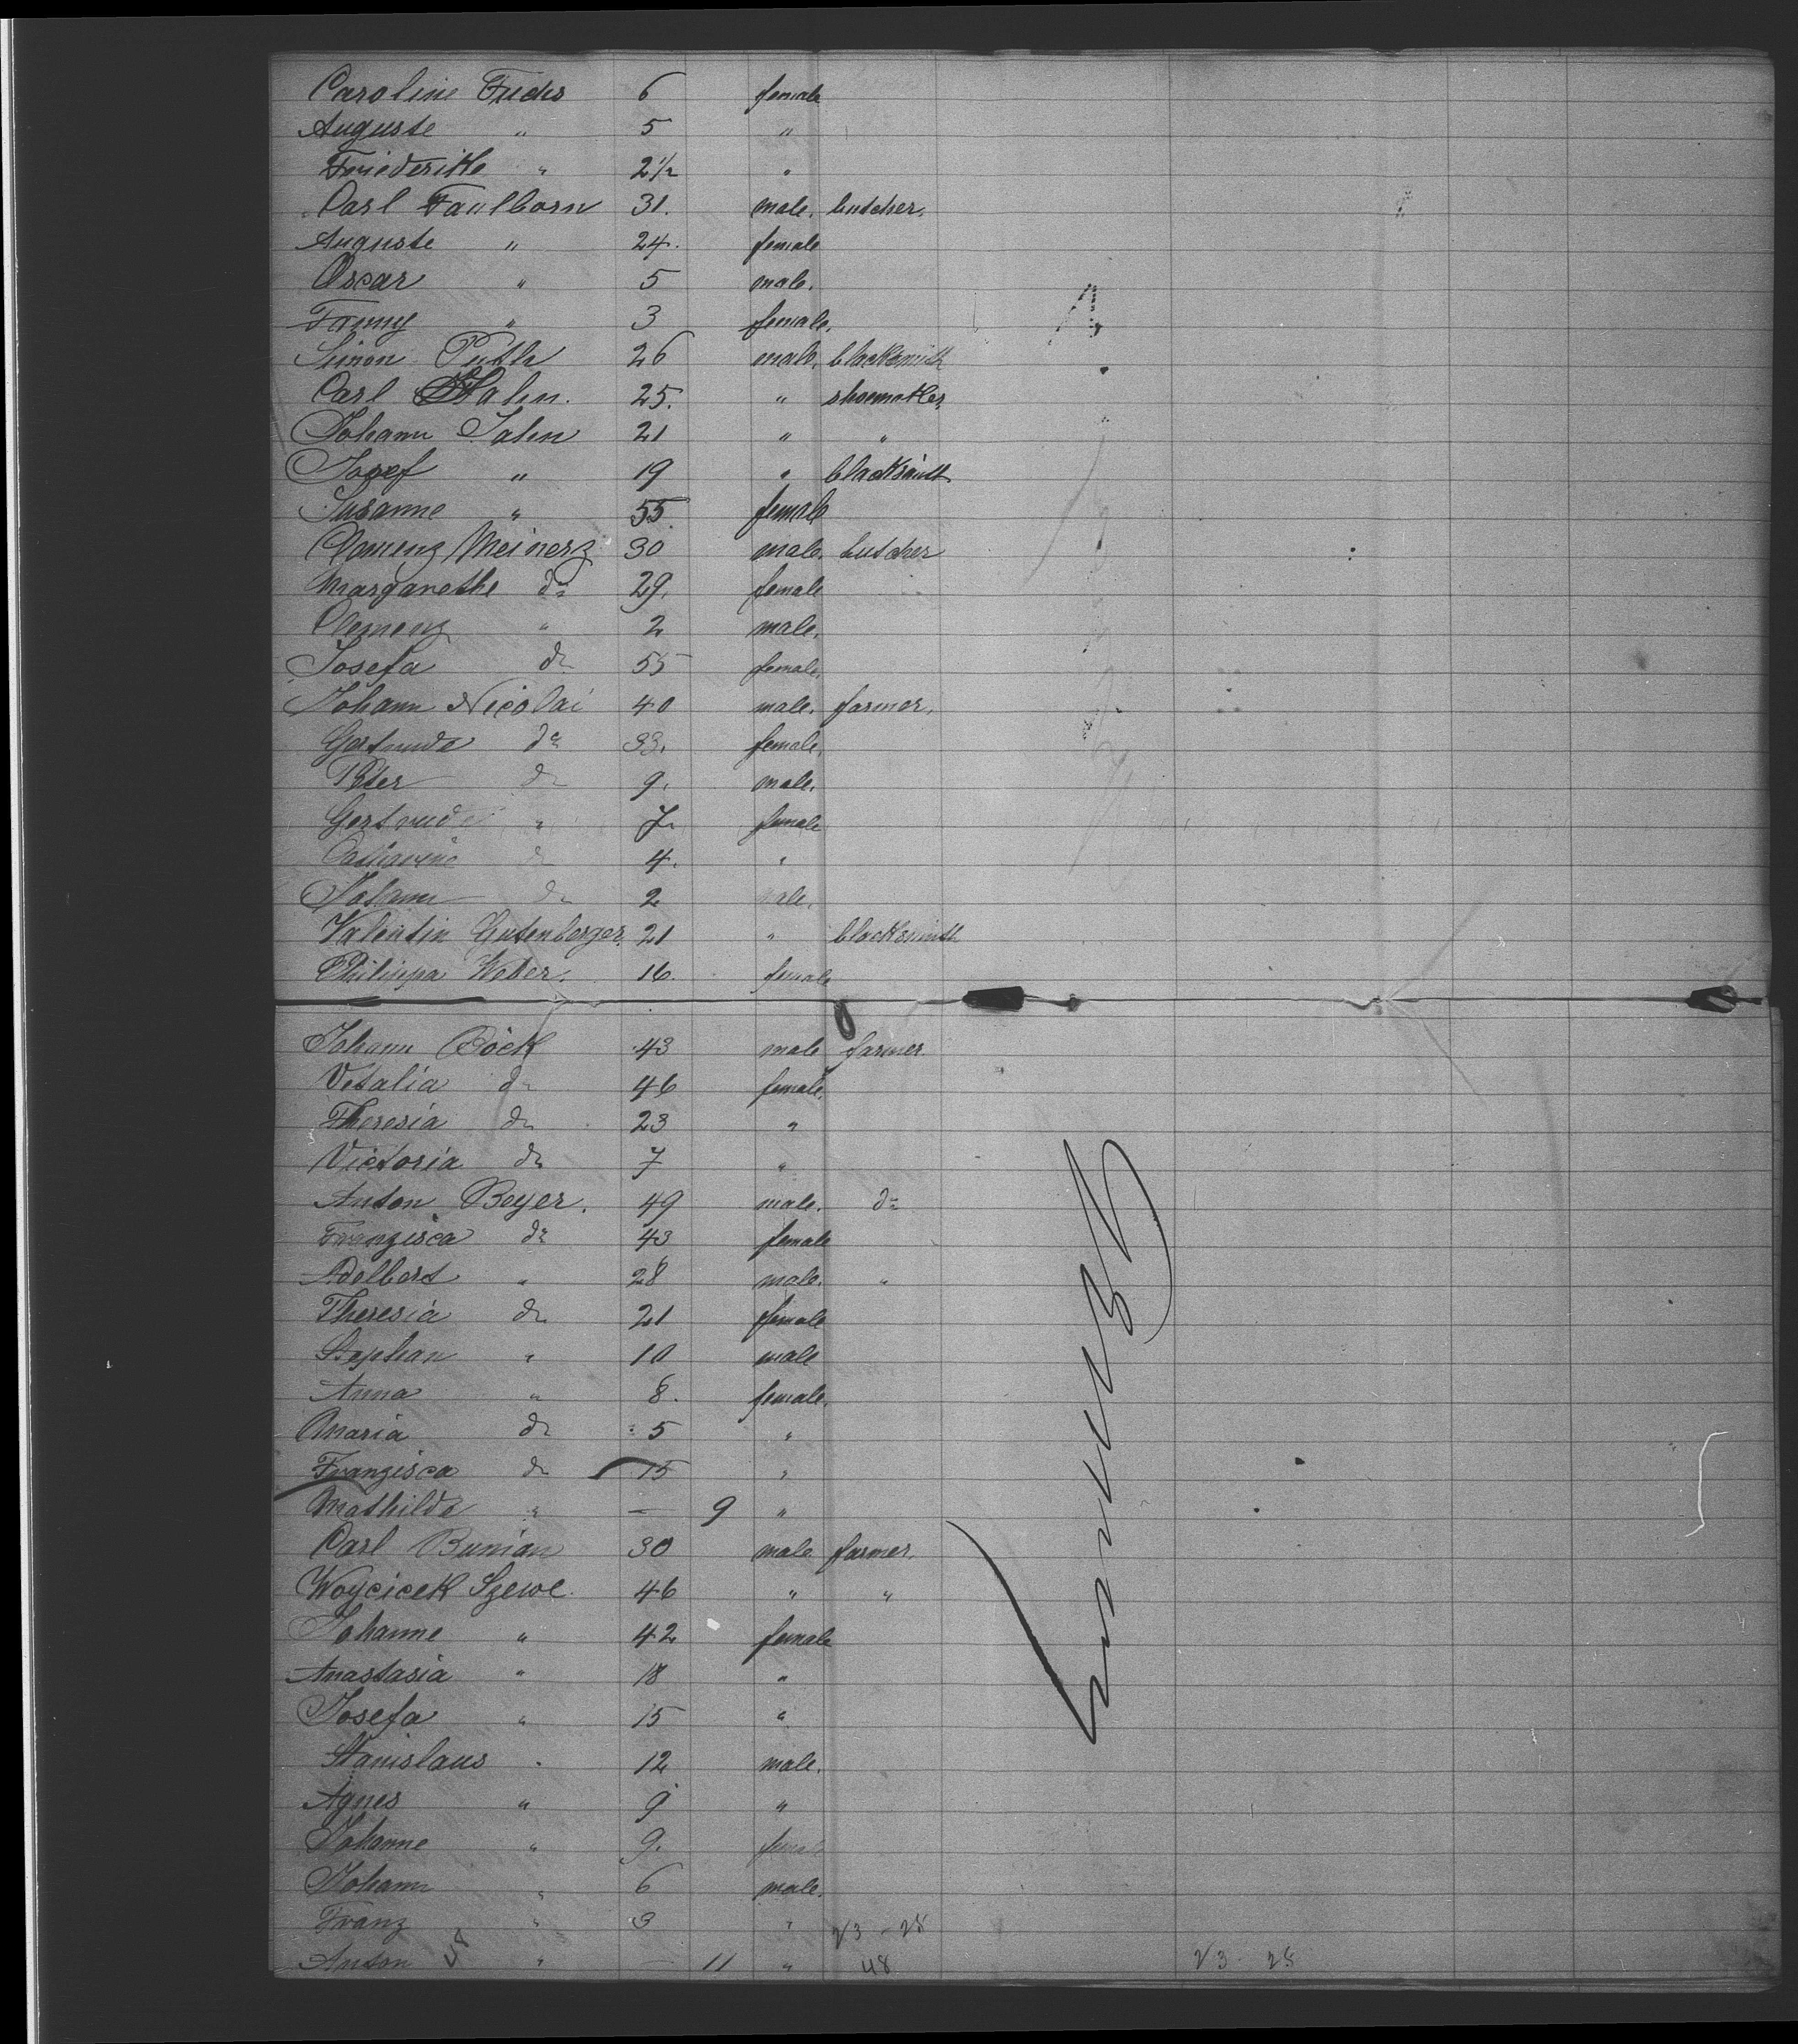 Caroline Fuchs 6 female
Auguste " 5 "
Friederike " 2 1/2 "
Carl Faulborn 31. male. butcher.
Auguste " 24. female
Oscar " 5 male.
Fanny " 3 female.
Simon Puth 26 male. blacksmith
Carl Hahn. 25. " shoemaker
Johann Jahn 21 " "
Josef " 19 " blacksmith
Susanne " 55. female
Clemenz Meinerz 30 male. butcher
Margarethe do 29. female
Clemenz " 2 male.
Josefa do 55 female.
Johann Nicolai 40 male. farmer.
Gertrude do 33. female.
Peter do 9. male.
Gertrude " 7 female
Catharine do 4. "
Johann do 2 male.
Valentin Gutenberger. 21 " blacksmith
Philippa Weber. 16. female
Johann Böck 43 male farmer
Vitalia do 46 female.
Theresia do 23 "
Victoria do 7 "
Anton Beyer. 49 male. do
Franzisca do 43 female
Adelbert " 28 male. "
Theresia do 21 female
Stephan " 10 male
Anna " 8. female.
Maria do 5 "
Franzisca do 15 "
Mathilde " — 9 "
Carl Bunian 30 male farmer.
Woycicek Szewc. 46 " "
Johanne " 42 female
Anastasia " 18 "
Josefa " 15 "
Stanislaus " 12 male.
Agnes " 9 "
Johanne " 9. female
Johann " 6 male.
Franz " 3 " 23 - 25
Anton 48 " — 11 " 48 23 - 25